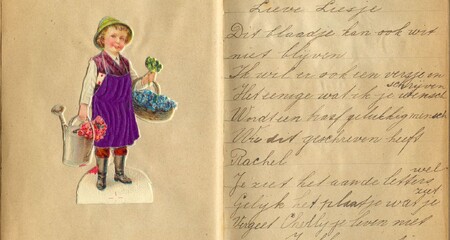 Lieve Liesje
Dit blaadje kan ook wit
niet blijven
Ik wil er ook een versje in
schrijven
Het eenige wat ik je wensch
Wordt een hoof gelukkig mensch
Wie dit geschreven heeft
Rachel
Je ziet het aan de letters wel
Gelijk het plaatje wat je ziet
Vergeet
leven niet